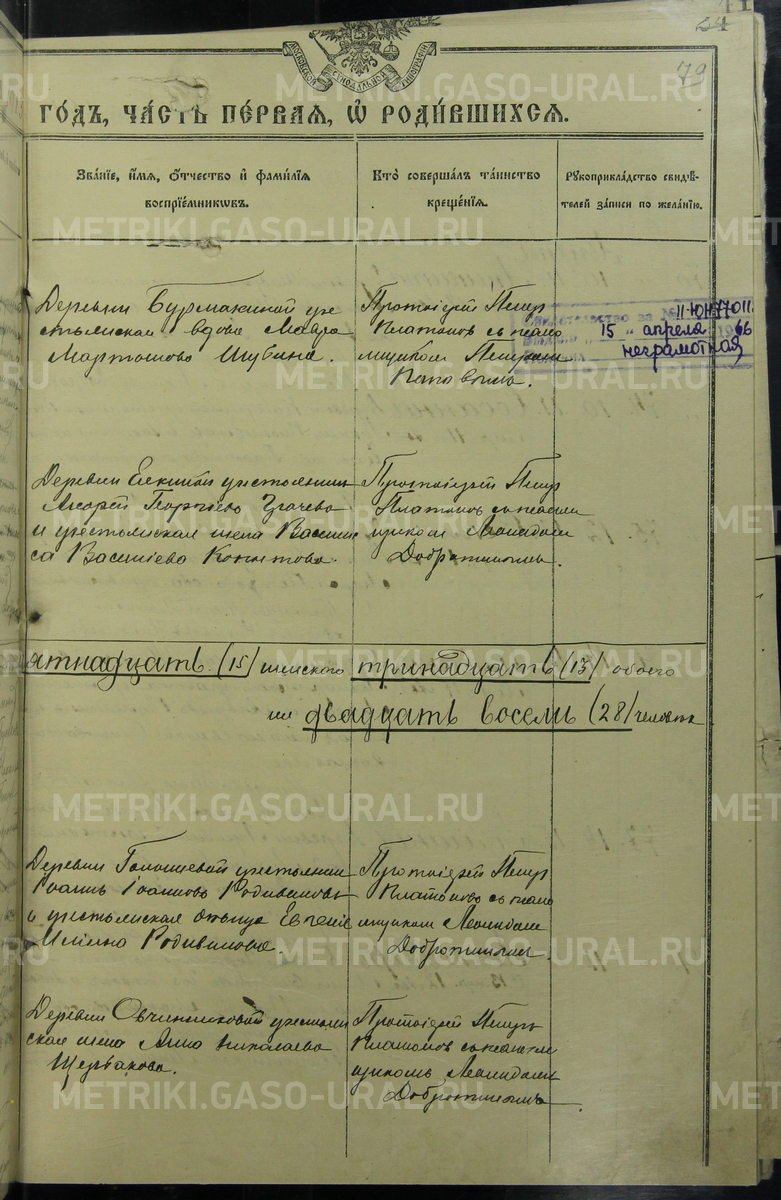 24
79
МОСКОВСКОЙ СѴНОДАЛЬНОЙ ТИПОГРАФІИ
ГОДЪ, ЧАСТЬ ПЕРВАЯ, Ѡ РОДИВШИХСЯ.
Званіе, имя, отчество и фамилія воспріемникѡвъ.
Кто совершалъ таинство крещенія.
Рукоприкладство свидѣтелей записи по желанію.
Деревни Бурмакиной кре
стьянская вдова Мавра
Мартинова Шубина.
Протоіерей Петръ
Платоновъ съ псало
мщикомъ Петромъ
II-ЮН 77011
15 апреля 66
неграмотная
Деревни Елкиной крестьянинъ
Андрей Георгіевъ
и крестьянская жена Васили
са Васильева
Протоіерей Петръ
Платоновъ съ псалом
щикомъ Леонидомъ
Добротинымъ.
ятнадцать (15) женского тринадцать (13) обоего
двадцать восемь (28) человѣкъ
Деревни крестьянинъ
Іоаннъ Іоанновъ Родивановъ
и крестьянская дѣвица Евгенія
Родиванова.
Протоіерей Петръ
Платоновъ съ псало
мщикомъ Леонидомъ
Добротинымъ.
Деревни Овчинниковой крестьян
ская жена Анна Николаева
Щербакова.
Протоіерей Петръ
Платоновъ съ псалом
щикомъ Леонидомъ
Добротинымъ
METRIKI.GASO-URAL.RU